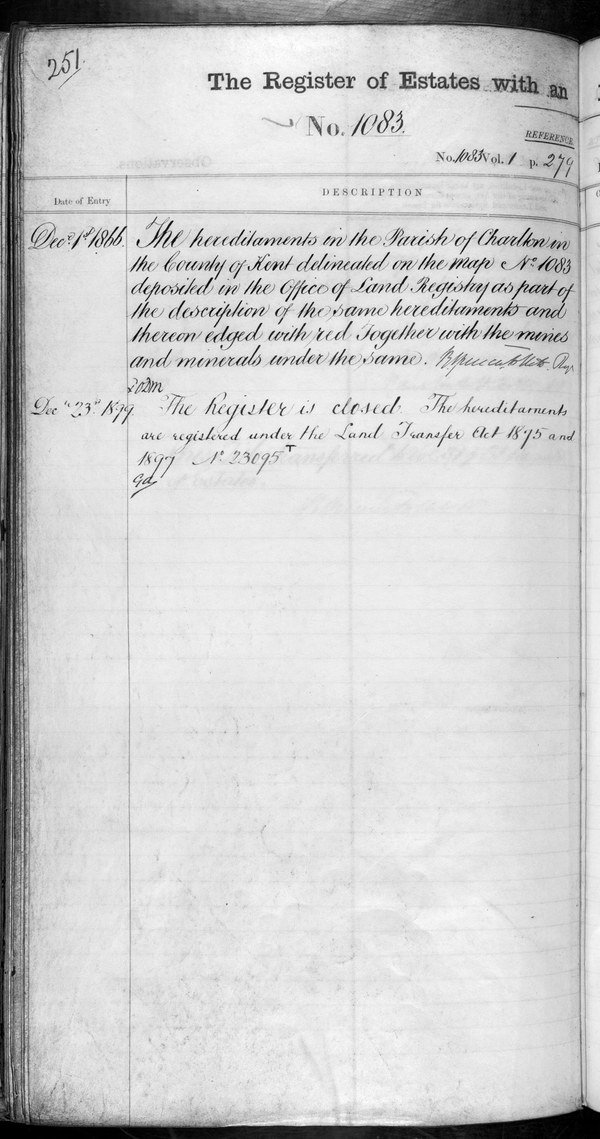 251.
The Register of Estates with an
No. 1083.
REFERENCE
No. 1083 Vol. 1 p. 279
Date of Entry
DESCRIPTION
Decr. 1st 1866. The hereditaments in the Parish of Charlton in
the County of Kent delineated on the map No. 1083
deposited in the Office of Land Registry as part of
the description of the same hereditaments and
thereon edged with red Together with the mines
and minerals under the same.
Decr 23rd 1899 The Register is closed. The hereditaments
are registered under the Land Transfer Act 1875 and
1897 No. 23095 T